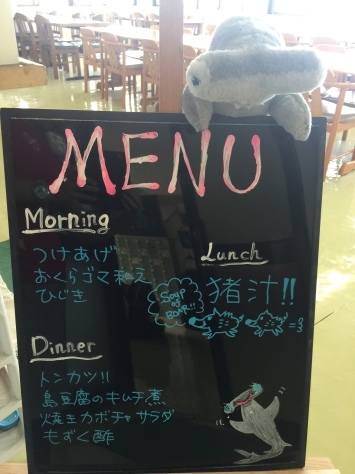 MENU
Morning
つけあげ
おくらゴマ和え
ひじき
Lunch
猪汁!!
Soup
of
BOAR!!
Dinner
トンカツ!!
島豆腐のキムチ煮
焼きカボチャサラダ
もずく酢